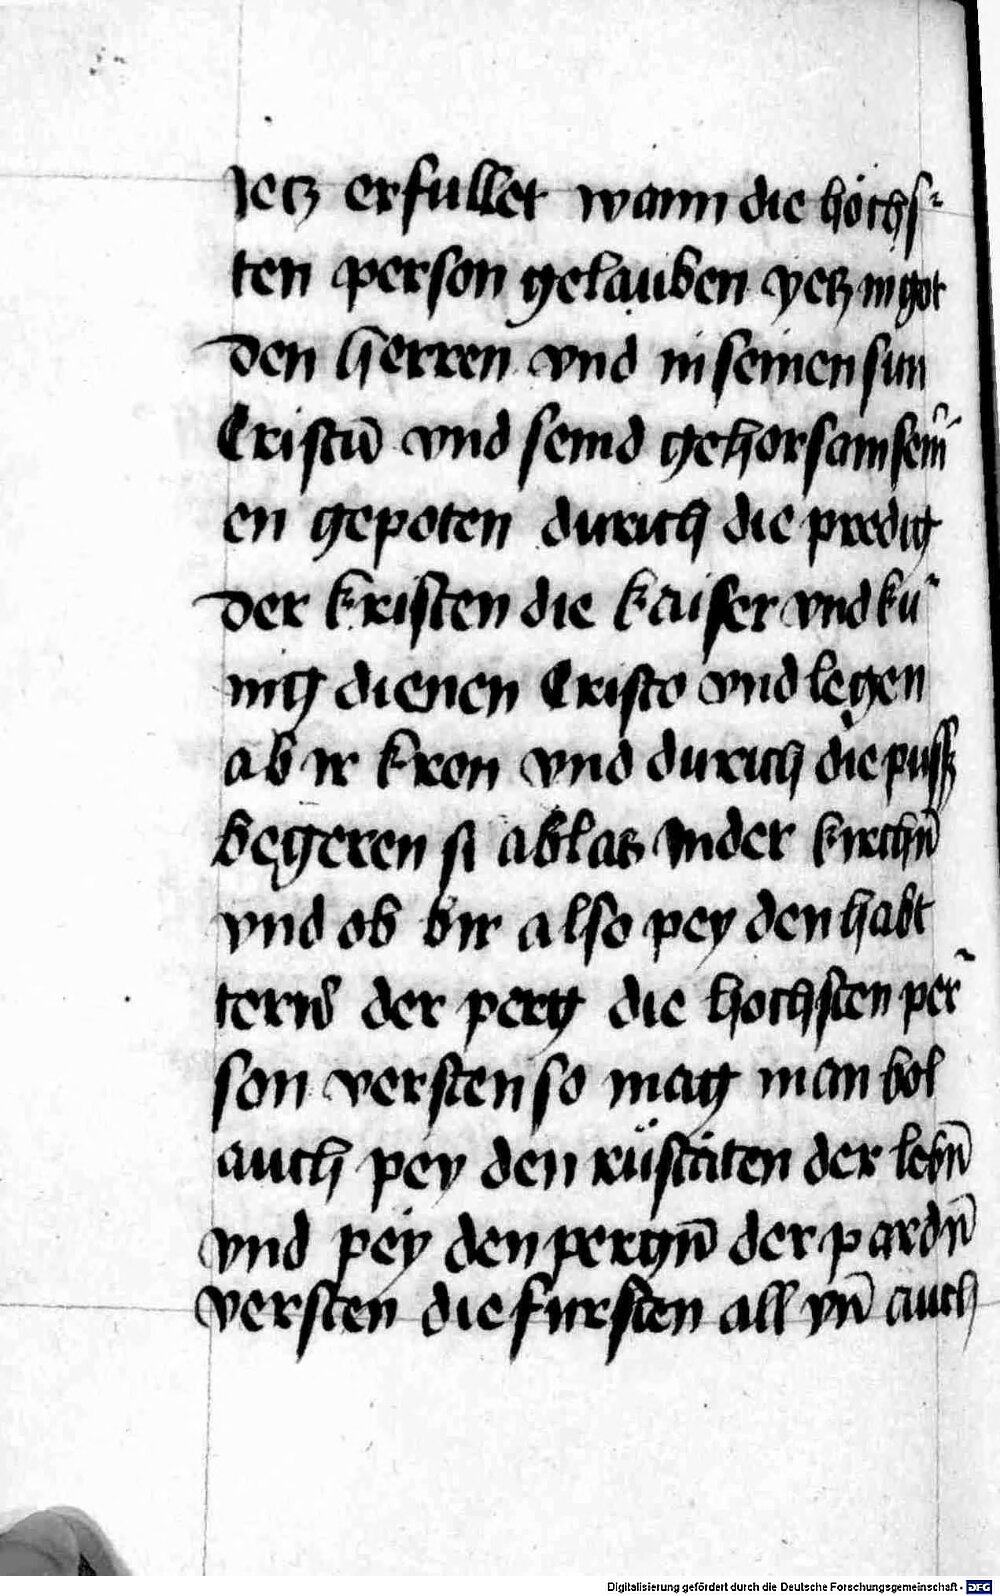 Jetz erfullet wann die höchs-
ten person gelauben yetz in got
den herren vnd in seinen sun
Cristū vnd seind gehorsam sein̄
en gepoten durich die predig
der kristen die kaiser vnd kü-
nig dienen Cristo vnd legen
ab ir kron vnd durich die pussz
begeren si ablas in der kirchn̄
vnd ob bir also pey den habt
tern der perg die hochsten per-
son versten so mag man bol
auch pey den rüstäten der lebn̄
vnd pey den pergn̄ der pardn̄
versten die fursten all vn̄ auch
Digitalisierung gefördert durch die Deutsche Forschungsgemeinschaft - DFG